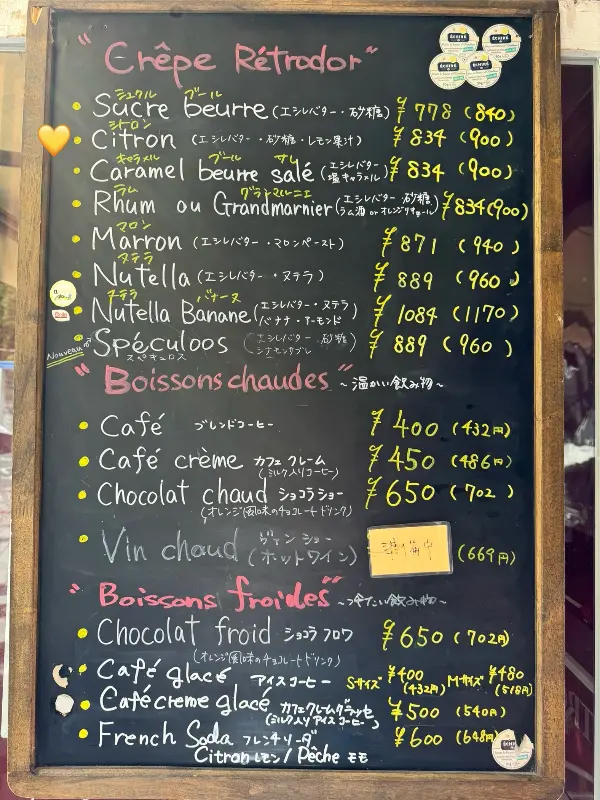 "Crêpe Rétrodor"
シュクル ブール
Sucre beurre (エシレバター・砂糖) ¥778 (840)
シトロン
Citron (エシレバター・砂糖・レモン果汁) ¥834 (900)
キャラメル ブール サレ
Caramel beurre salé (エシレバター 塩キャラメル) ¥834 (900)
ラム グランマルニエ
Rhum ou Grandmarnier (エシレバター・砂糖 ラム酒 or オレンジリキュール) ¥834 (900)
マロン
Marron (エシレバター・マロンペースト) ¥871 (940)
ヌテラ
Nutella (エシレバター・ヌテラ) ¥889 (960)
ヌテラ バナーヌ
Nutella Banane (エシレバター・ヌテラ バナナ・アーモンド) ¥1084 (1170)
Nouveau Spéculoos (エシレバター・砂糖 シナモンサブレ) ¥889 (960)
スペキュロス
"Boissons chaudes" ~温かい飲み物~
Café ブレンドコーヒー ¥400 (432円)
Café crème カフェクレーム ¥450 (486円)
(ミルク入りコーヒー)
Chocolat chaud ショコラショー ¥650 (702
(オレンジ風味のチョコレートドリンク)
Vin chaud ヴァンショー (ホットワイン) 準備中 (669円)
"Boissons froides" ~冷たい飲み物~
Chocolat froid ショコラフロワ ¥650 (702円)
(オレンジ風味のチョコレートドリンク)
Café glacé アイスコーヒー Sサイズ ¥400 (432円) Mサイズ ¥480 (518円)
Café creme glacé カフェクレームグラッセ ¥500 (540円)
(ミルク入りアイスコーヒー)
French Soda フレンチソーダ ¥600 (648円)
Citron レモン / Pêche モモ